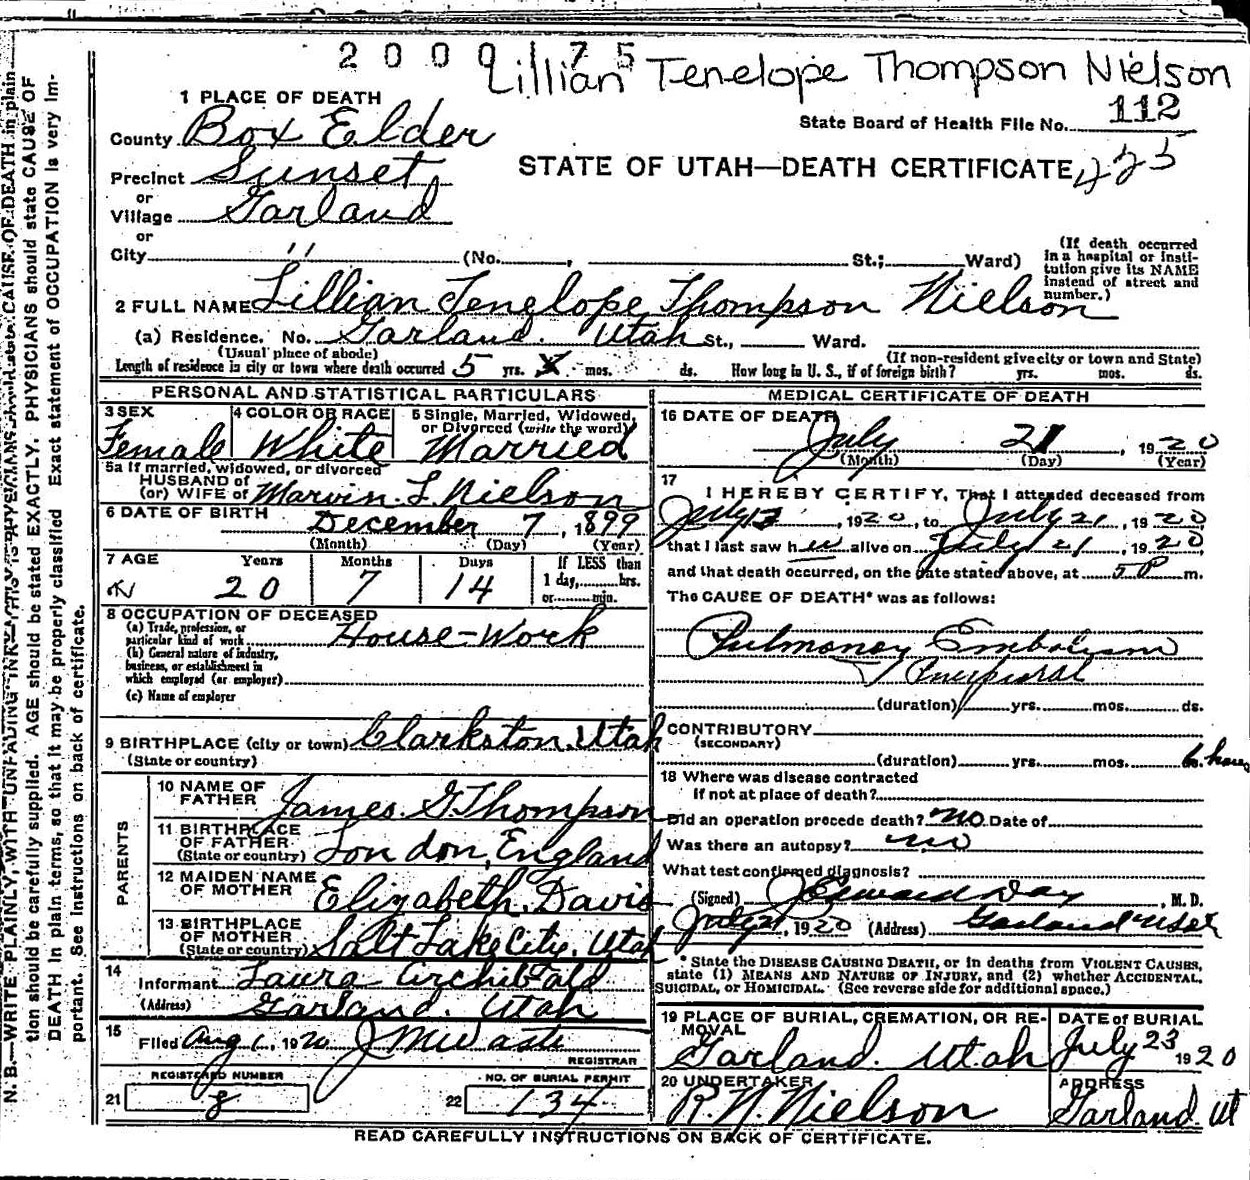 2000175
Lillian Tenelope Thompson Nielson
1 PLACE OF DEATH
County Box Elder
State Board of Health File No. 112
Precinct Sunset
STATE OF UTAH—DEATH CERTIFICATE
or
Village Garland
or
City " (No. , St.; Ward)
(If death occurred in a hospital or institution give its NAME instead of street and number.)
2 FULL NAME Lillian Tenelope Thompson Nielson
(a) Residence. No. Garland. Utah St., Ward.
(Usual place of abode) (If non-resident give city or town and State)
Length of residence in city or town where death occurred 5 yrs. mos. ds. How long in U. S., if of foreign birth? yrs. mos. ds.
PERSONAL AND STATISTICAL PARTICULARS
3 SEX Female
4 COLOR OR RACE White
5 Single, Married, Widowed, or Divorced (write the word) Married
5a If married, widowed, or divorced
HUSBAND of
(or) WIFE of Marvin L. Nielson
6 DATE OF BIRTH December 7, 1899
(Month) (Day) (Year)
7 AGE Years Months Days If LESS than
20 7 14 1 day, hrs.
or min.
8 OCCUPATION OF DECEASED
(a) Trade, profession, or particular kind of work House-Work
(b) General nature of industry, business, or establishment in which employed (or employer)
(c) Name of employer
9 BIRTHPLACE (city or town) Clarkston, Utah
(State or country)
PARENTS
10 NAME OF FATHER James G Thompson
11 BIRTHPLACE OF FATHER (State or country) London, England
12 MAIDEN NAME OF MOTHER Elizabeth Davis
13 BIRTHPLACE OF MOTHER (State or country) Salt Lake City, Utah
14 Informant Laura Archibald
(Address) Garland. Utah
15 Filed Aug 1, 1920
REGISTRAR
REGISTERED NUMBER NO. OF BURIAL PERMIT
21 8 22 134
MEDICAL CERTIFICATE OF DEATH
16 DATE OF DEATH July 21, 1920
(Month) (Day) (Year)
17 I HEREBY CERTIFY, That I attended deceased from
July 12, 1920, to July 21, 1920
that I last saw her alive on July 21, 1920
and that death occurred, on the date stated above, at 5 P m.
The CAUSE OF DEATH* was as follows:
Pulmonary Embolism
Puerperal
(duration) yrs. mos. ds.
CONTRIBUTORY
(SECONDARY)
(duration) yrs. mos. 6 hours
18 Where was disease contracted
If not at place of death?
Did an operation precede death? no Date of
Was there an autopsy? no
What test confirmed diagnosis?
(Signed) J Edward Day, M. D.
July 21, 1920 (Address) Garland Utah
* State the DISEASE CAUSING DEATH, or in deaths from VIOLENT CAUSES,
state (1) MEANS AND NATURE OF INJURY, and (2) whether ACCIDENTAL,
SUICIDAL, or HOMICIDAL. (See reverse side for additional space.)
19 PLACE OF BURIAL, CREMATION, OR REMOVAL Garland. Utah
DATE of BURIAL July 23 1920
20 UNDERTAKER R. N. Nielson
ADDRESS Garland. Ut
READ CAREFULLY INSTRUCTIONS ON BACK OF CERTIFICATE.
N. B.—WRITE PLAINLY, WITH UNFADING INK
tion should be carefully supplied. AGE should be stated EXACTLY. PHYSICIANS should state CAUSE OF
DEATH in plain terms, so that it may be properly classified. Exact statement of OCCUPATION is very im-
portant. See instructions on back of certificate.